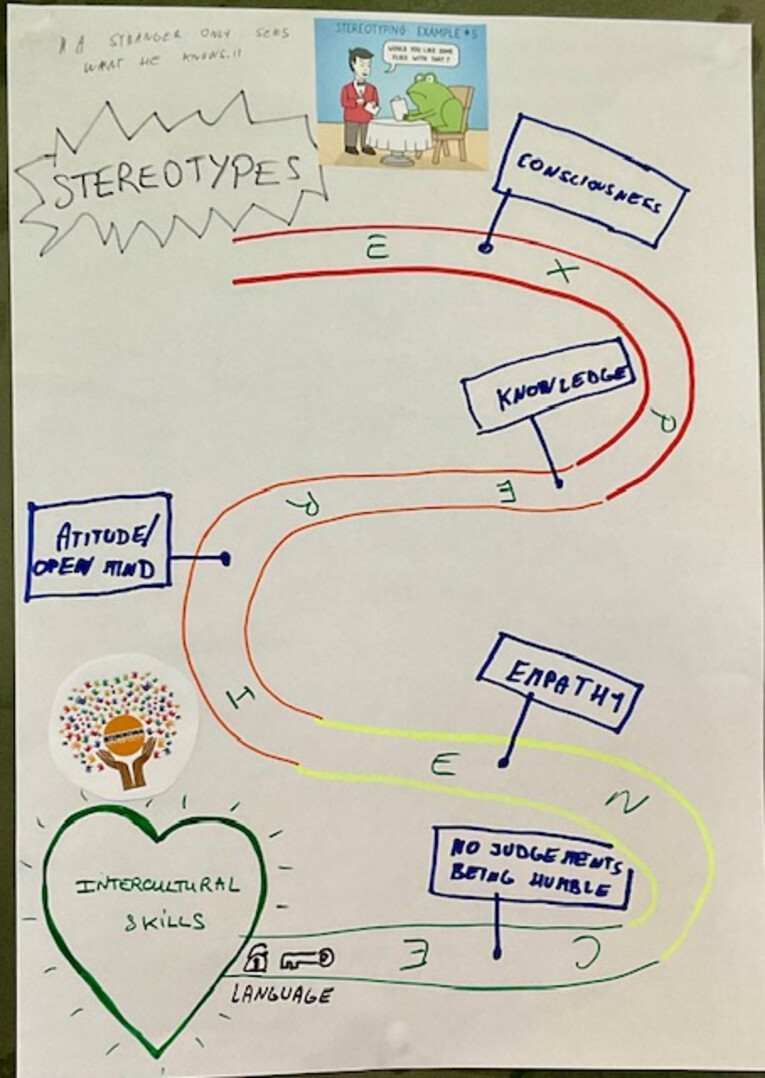 "A STRANGER ONLY SEES
WANT HE KNOWS."
STEREOTYPING EXAMPLE #5
WOULD YOU LIKE SOME
FLIES WITH THAT?
STEREOTYPES
CONSCIOUSNESS
E X P E R I E N C E
KNOWLEDGE
ATITUDE/
OPEN MIND
EMPATHY
NO JUDGEMENTS
BEING HUMBLE
INTERCULTURAL
SKILLS
LANGUAGE